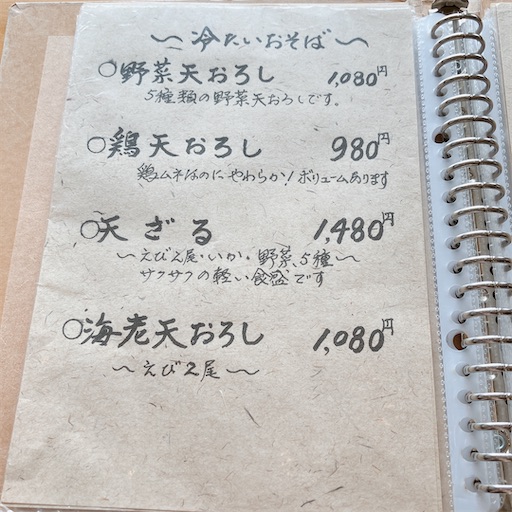 ～冷たいおそば～
○野菜天おろし 1,080円
5種類の野菜天おろしです。
○鶏天おろし 980円
鶏ムネなのにやわらか！ボリュームあります
○天ざる 1,480円
～えび2尾・いか・野菜5種～
サクサクの軽い食感です
○海老天おろし 1,080円
～えび2尾～